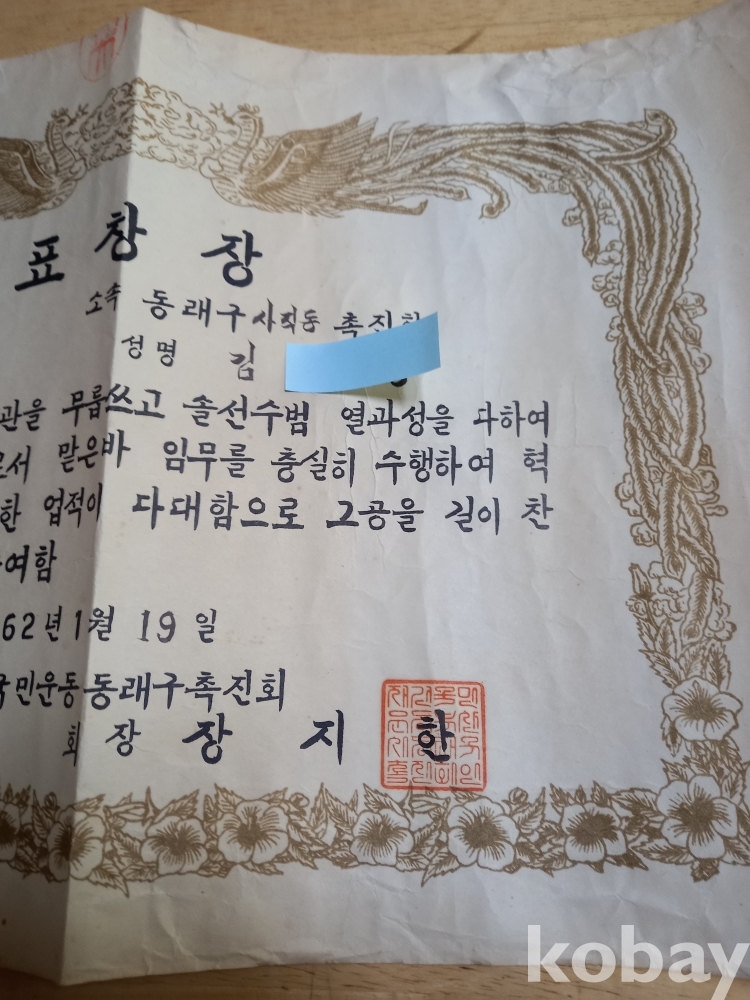 표 창 장
소속 동래구사직동 촉진회
성명 김
관을 무릅쓰고 솔선수범 열과성을 다하여
로서 맡은바 임무를 충실히 수행하여 혁
한 업적이 다대함으로 그공을 길이 찬
여함
62년 1월 19일
국민운동동래구촉진회
회장 장 지 한
kobay